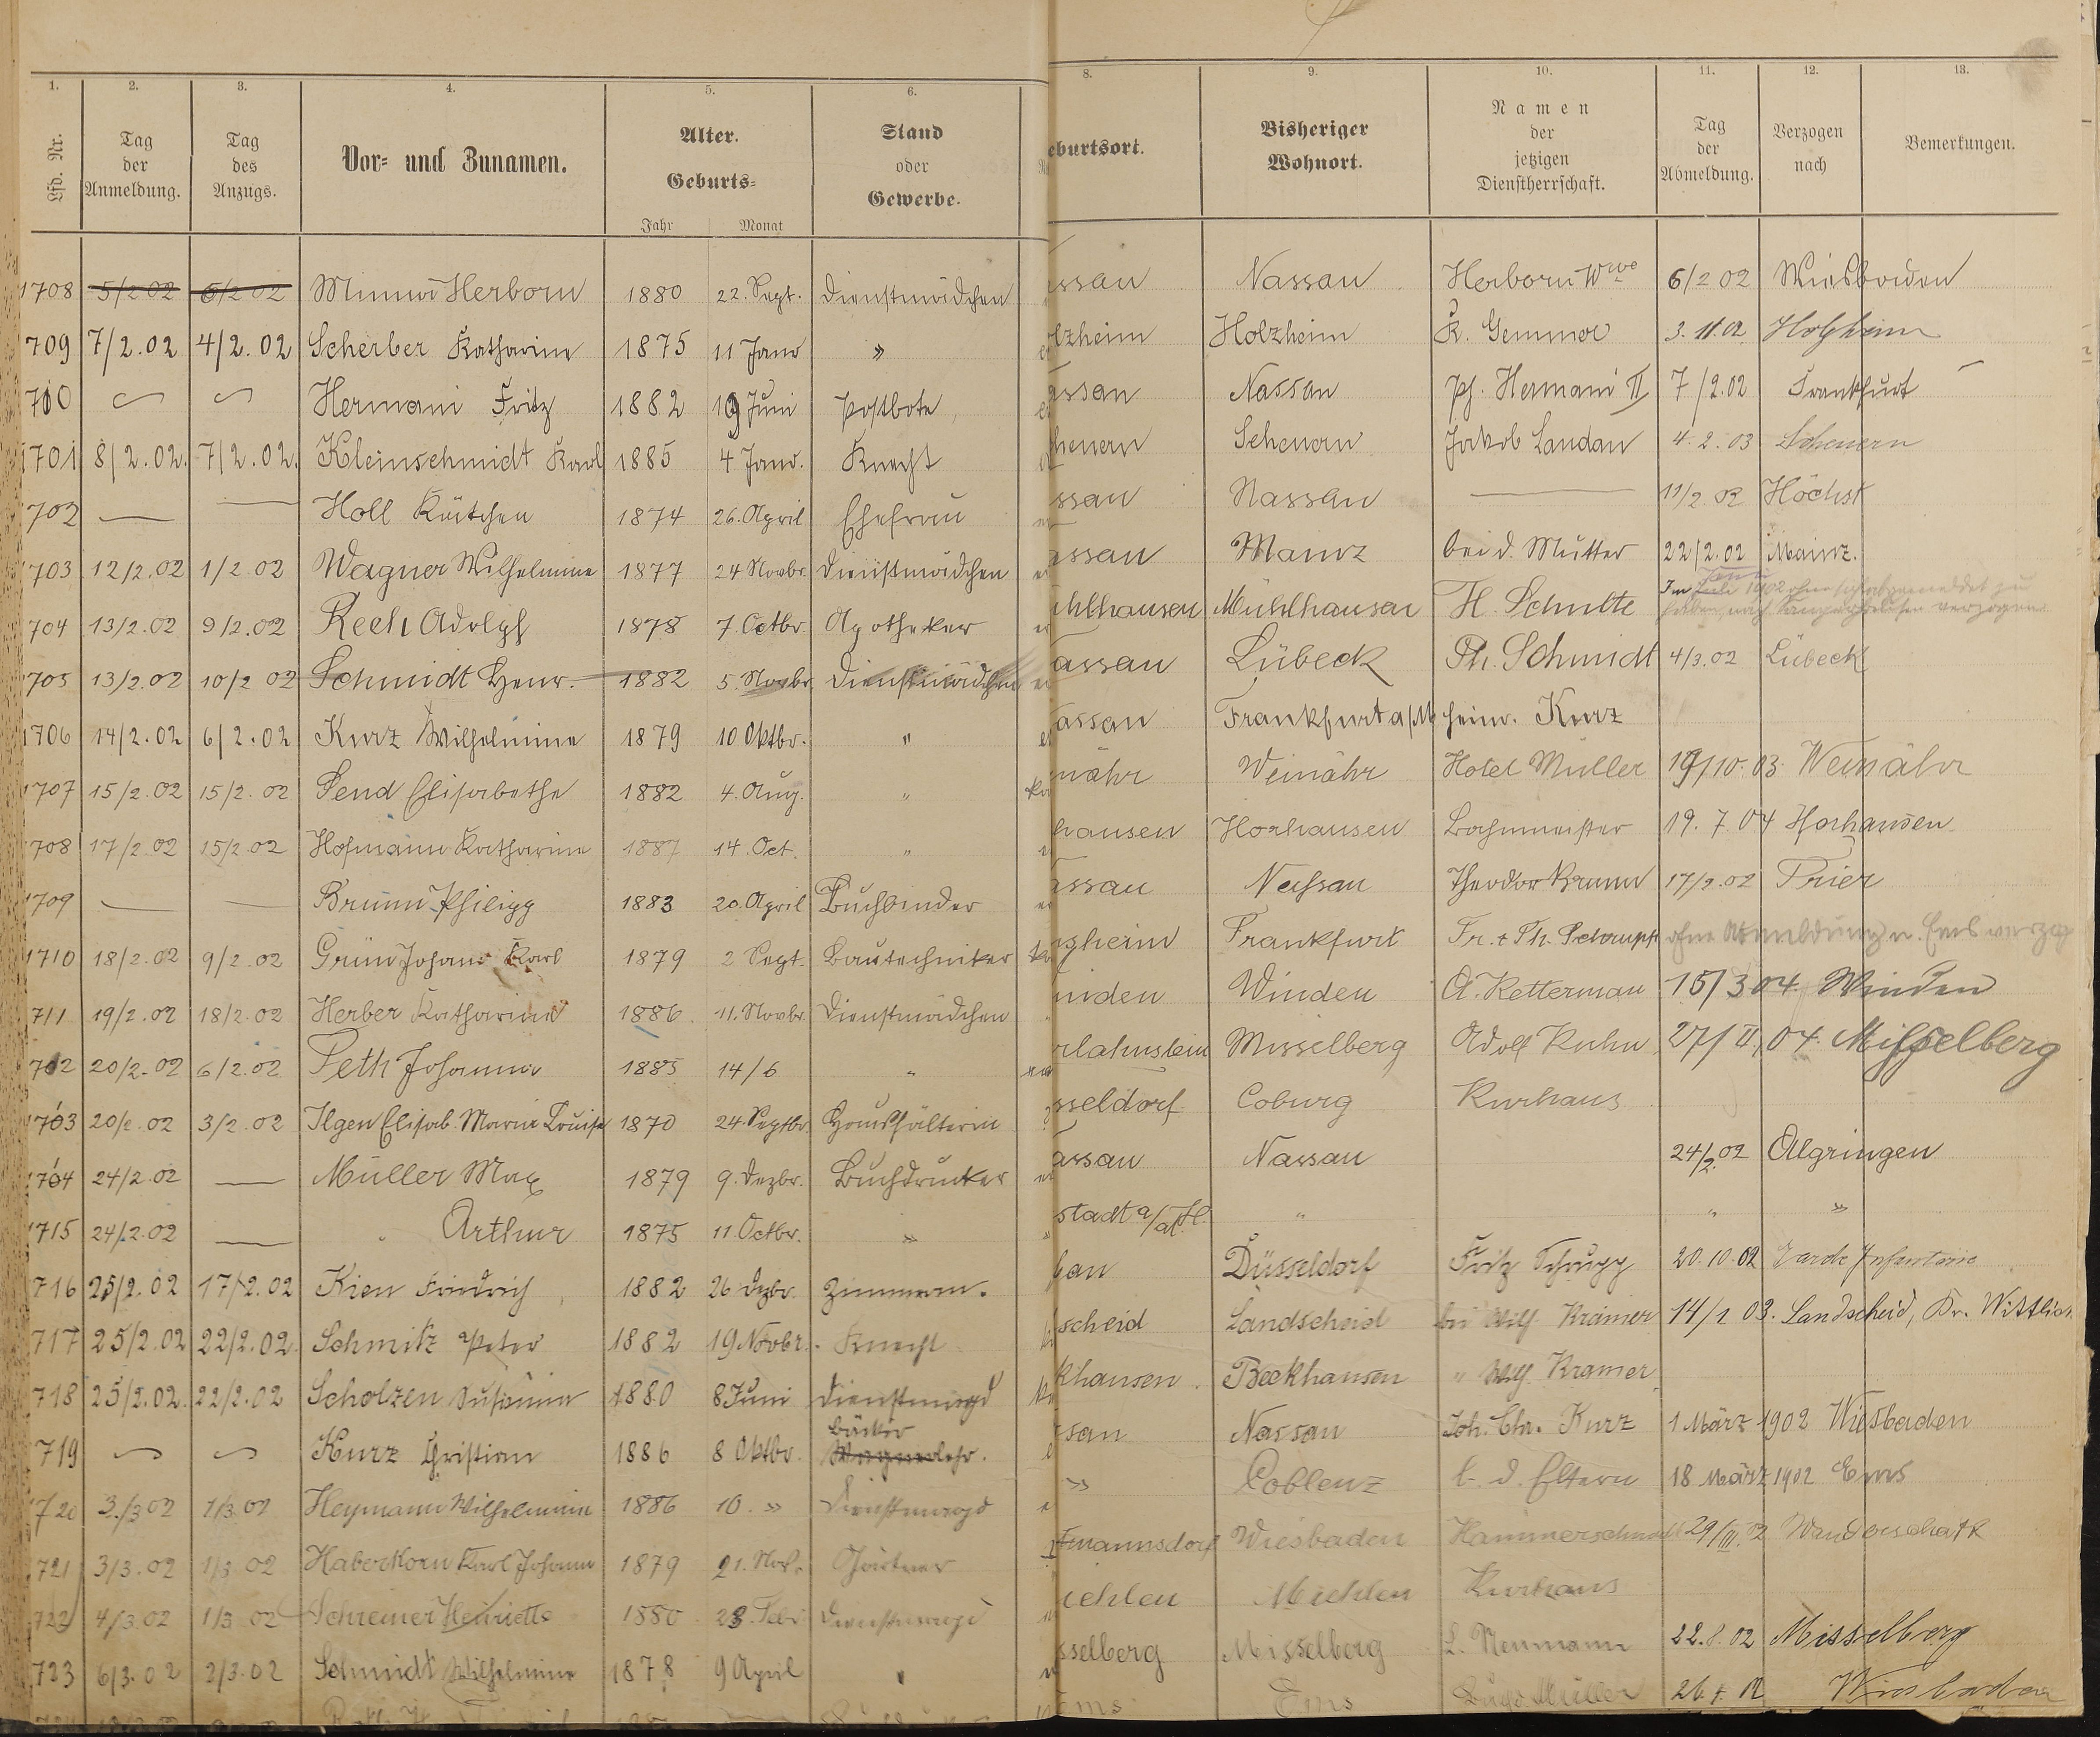 1. 2. 3. 4. 5. 6. 8. 9. 10. 11. 12. 13.
Lfd. Nr. Tag der Anmeldung. Tag des Anzugs. Vor- und Zunamen. Alter. Geburts- Jahr Monat Stand oder Gewerbe. eburtsort. Bisheriger Wohnort. Namen der jetzigen Dienstherrschaft. Tag der Abmeldung. Verzogen nach Bemerkungen.
1708 5/2 02 6/2 02 Minna Herborn 1880 22. Sept. Dienstmädchen ssau Nassau Herborn Wwe 6/2 02 Wiesbaden
709 7/2.02 4/2.02 Scherber Katharina 1875 11 Janr " olzheim Holzheim K. Gemmer 3.11.02 Holzheim
710 Hermani Fritz 1882 19 Juni Postbote assau Nassau Ph. Hermani II 7/2.02 Frankfurt
1701 8/2.02. 7/2.02. Kleinschmidt Karl 1885 4 Janr. Knecht heuern Scheuern Jakob Landau 4.2.03 Scheuern
1702 — — Holl Kätchen 1874 26. April Ehefrau ssau Nassau — 11/2.02 Höchst
1703 12/2.02 1/2.02 Wagner Wilhelmine 1877 24 Novbr. Dienstmädchen assau Mainz bei d. Mutter 22/2.02 Mainz.
704 13/2.02 9/2.02 Rech Adolph 1878 7. Octbr. Apotheker ühlhausen Mühlhausen H. Schulte Im Juni 1902 ohne sich abgemeldet zu haben, nach verzogen
1705 13/2.02 10/2 02 Schmidt Henr. 1882 5. Novbr. Dienstmädchen assau Lübeck Ph. Schmidt 4/3.02 Lübeck
1706 14/2.02 6/2.02 Kurz Wilhelmine 1879 10 Oktbr. " assau Frankfurt a/M Heinr. Kurz
1707 15/2.02 15/2.02 Send Elisabethe 1882 4. Aug. " nähr Weinähr Hotel Müller 19/10.03. Weinähr
708 17/2.02 15/2.02 Hofmann Katharina 1887 14. Oct. " hausen Horhausen Bahnmeister 19.7.04 Horhausen
1709 — — Brunn Philipp 1883 20. April Buchbinder assau Nassau Theodor Brunn 17/2.02 Trier
1710 18/2.02 9/2.02 Grün Johann Karl 1879 2 Sept. Bautechniker gheim Frankfurt Fr. + Ph. Schrupp ohne Abmeldung n. Ems verzog
711 19/2.02 18/2.02 Herber Katharina 1886 11. Novbr. Dienstmädchen inden Winden A. Ketterman 15/3 04. Winden
712 20/2.02 6/2.02 Peth Johanna 1885 14/6 " rlahnstein Misselberg Adolf Kuhn 27/II, 04. Misselberg
1713 20/2.02 3/2.02 Ilgen Elisab. Maria Louise 1870 24. Septbr. Haushälterin sseldorf Coburg Kurhaus
1714 24/2.02 — Müller Max 1879 9. Dezbr. Buchdrucker assau Nassau 24/2.02 Algringen
1715 24/2.02 — " Arthur 1875 11. Octbr. " stadt a/ " " "
716 25/2.02 17/2.02 Kien Friedrich 1882 26 Dezbr. Zimmerm. Düsseldorf Fritz Schrupp 20.10.02 Garde Infanterie
717 25/2.02 22/2.02 Schmitz Peter 1882 19 Novbr. Knecht scheid Landscheid bei Wilh. Krämer 14/1 03. Landscheid, Kr. Wittlich
718 25/2.02. 22/2.02 Scholzen Susanna 1880 8 Juni Dienstmagd khausen Beckhausen " Wilh. Kramer
719 Kurz Christian 1886 8 Oktbr. Bäcker Wagnerlehr. ssau Nassau Joh. Chr. Kurz 1 März 1902 Wiesbaden
1720 3./3 02 1/3 02 Heymann Wilhelmine 1886 10. " Dienstmagd " Coblenz b. d. Eltern 18 März 1902 Ems
721 3/3.02 1/3.02 Haberkorn Karl Johann 1879 21. Nov. Gärtner tmannsdorf Wiesbaden Hammerschmidt 29/III.02 Wanderschaft
722 4/3.02 1/3 02 Schreiner Henriette 1880 28. Febr. Dienstmagd iehlen Miehlen Kurhaus
723 6/3.02 2/3.02 Schmidt Wilhelmine 1878 9 April " sselberg Misselberg L. Neumann 22.8.02 Misselberg
ems Ems Müller 26.4.02 Wiesbaden